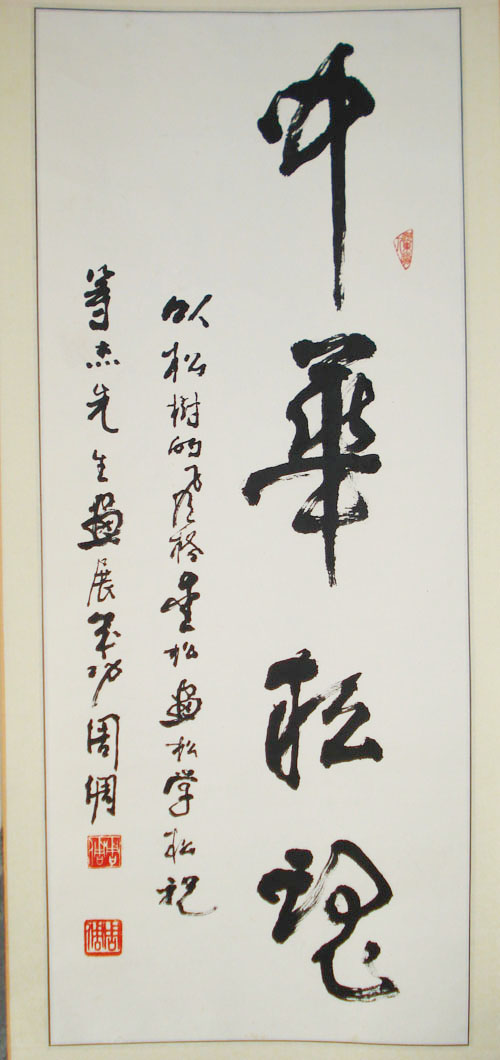 中華松魂
以松樹的风格爱松畫松学松祝
杰先生畫展成功周倜